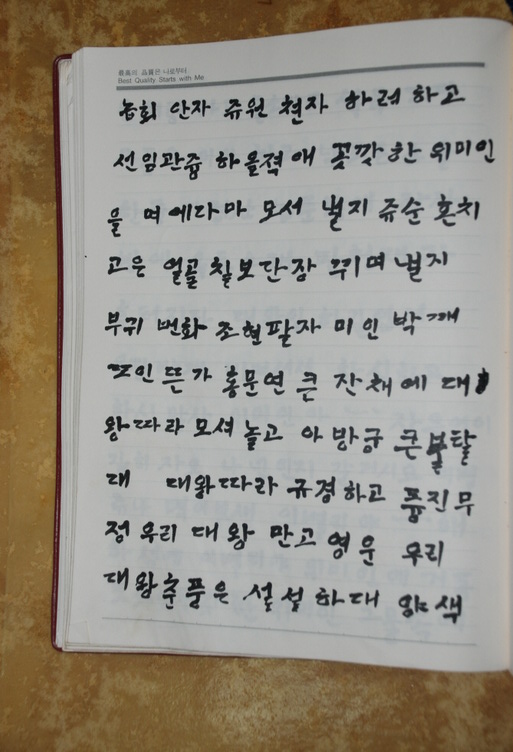 最高의 品質은 나로부터
Best Quality Starts with Me
농회 안자 쥬원 현자 하려 하고
선임관즁 하올젹 애 꽃깟 한 위미인
을 며 에다마 모서 낼지 쥬순 혼치
고은 얼골 칠보단장 뀌며 낼지
부귀 번화 조현팔자 미인 박
뜬가 홍문연 큰 잔채 에 대
왕따라 모셔 놀고 아 방궁 큰 불탈
대 대왕따라 규경하고 풍진무
정 우리 대왕 만고영운 우리
대왕춘풍은 설설하대